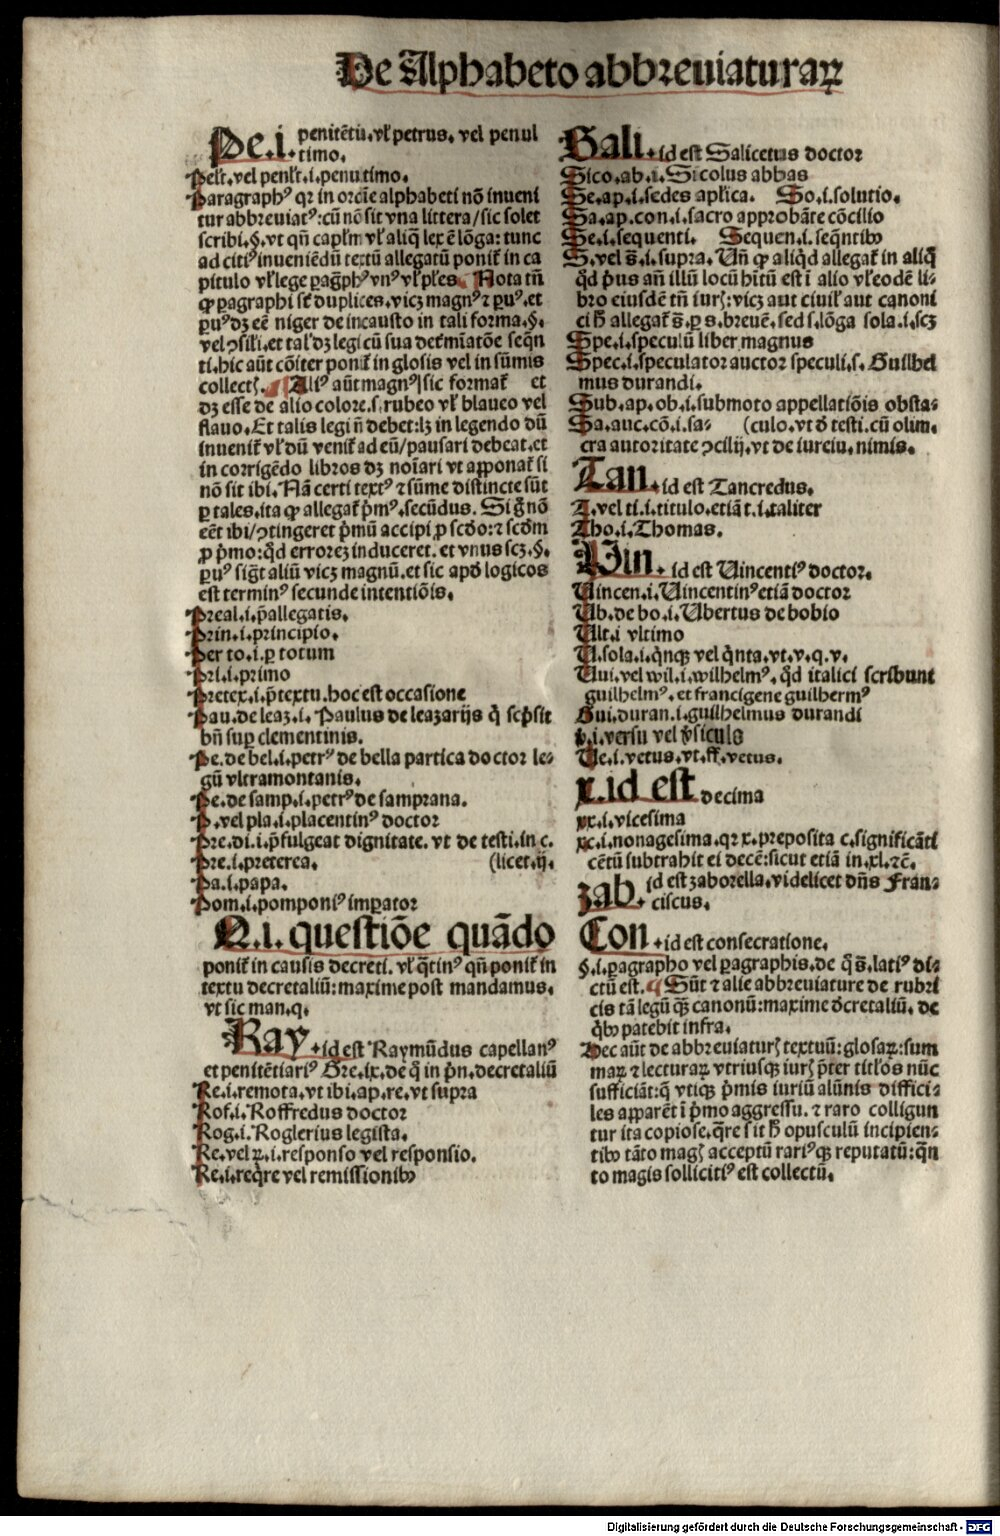 De Alphabeto abbreuiaturaꝝ
Pe.i. penitētiū.vl̕ petrus. vel penul
timo.
Pel̕t.vel penl̕t.i.penutimo.
Paragraphꝰ qꝛ in ordīe alphabeti nō inueni
tur abbreuiatꝰ:cū nō sit vna littera/sic solet
scribi.§.vt qn̄ capl̕m vl̕ aliq̄ lex ē lōga: tunc
ad citiꝰ inueniēdū textū allegatū ponit̕ in ca
pitulo vl̕ lege ꝑag̅phꝰ vnꝰ vl̕ pl̕es. Nota tn̄
ꝙ ꝑagraphi st̕ duplices.vicꝫ magnꝰ ⁊ ꝑuꝰ.et
ꝑuꝰ dꝫ eē niger de incausto in tali forma.§.
vel ↄsil̕i.et tal̕ dꝫ legi cū sua det̕miatōe seqn̄
ti.hic aūt cōiter ponit̕ in glosis vel in sūmis
collectꝭ. Aliꝰ aūt magnꝰ sic format̕ et
dꝫ esse de alio colore.s.rubeo vl̕ blaueo vel
flauo.Et talis legi n̄ debet:lꝫ in legendo dū
inuenit̕ vl̕ dū venit̕ ad eū/pausari debeat.et
in corrigēdo libros dꝫ noīari vt aꝓponat̕ si
nō sit ibi.Nā certi textꝰ ⁊ sūme distincte sūt
ꝑ tales.ita ꝙ allegat̕ p̄mꝰ.secūdus. Si g̅ nō
eēt ibi/ↄtingeret p̄mū accipi ꝓ scd̄o:⁊ scd̄m
ꝓ p̄mo:qd̄ erroreꝫ induceret. et vnus scꝫ.§.
ꝑuꝰ sig̅t aliū vicꝫ magnū.et sic apd̄ logicos
est terminꝰ secunde intentiōis.
Preal.i.p̄allegatis.
Prin.i.principio.
Per to.i.ꝑ totum
Pri.i.primo
Pretex.i.p̄textu.hoc est occasione
Pau.de leaz.i. Paulus de leazarijs q̄ scp̄sit
bn̄ suꝑ clementinis.
Pe.de bel.i.petrꝰ de bella partica doctor le⸗
gū vltramontanis.
Pe.de samp.i.petrꝰ de samprana.
P.vel pla.i.placentinꝰ doctor
Pre.di.i.p̄fulgeat dignitate. vt de testi.in c.
Pre.i.preterea. (licet.ij.
Pa.i.papa.
Pom.i.pomponiꝰ imꝑator
Q.i. questiōe quādo
ponit̕ in causis decreti. vl̕ q̄tinꝰ qn̄ ponit̕ in
textu decretaliū:maxime post mandamus.
vt sic man.q.
Ray.id est Raymūdus capellanꝰ
et penitētiariꝰ Gre.ix.de q̄ in p̄n.decretaliū
Re.i.remota.vt ibi.ap.re.vt supra
Rof.i.Roffredus doctor
Rog.i.Roglerius legista.
Re.vel ꝶ.i.responso vel responsio.
Re.i.req̄re vel remissionibꝰ
Sali.id est Salicetus doctor
Sico.ab.i.Sicolus abbas
Se.ap.i.sedes apl̕ica. So.i.solutio.
Sa.ap.con.i.sacro approbāte cōcilio
Se.i.sequenti. Sequen.i.seq̄ntibꝰ
S.vel s̄.i.supra. Un̄ ꝙ aliq̄d allegat̕ in aliq̄
qd̄ p̄us an̄ illū locū hītū est ī alio vl̕ eodē li⸗
bro eiusdē tn̄ iurꝭ:vicꝫ aut ciuil̕ aut canoni
ci h̄ allegat̕ s̄.ꝑ s.breuē.sed s.lōga sola.i.scꝫ
Spe.i.speculū liber magnus
Spec.i.speculator auctor speculi.s. Guilhel
mus durandi.
Sub.ap.ob.i.submoto appellatiōis obsta⸗
Sa.auc.cō.i.sa⸗ (culo.vt d̄ testi.cū olim.
cra autoritate ↄcilij.vt de iureiu.nimis.
Tan.id est Tancredus.
T.vel ti.i.titulo.etiā t.i.taliter
Tho.i.Thomas.
Vin. id est Uincentiꝰ doctor.
Uincen.i.Uincentinꝰ etiā doctor
Ub.de bo.i.Ubertus de bobio
Ult.i vltimo
U.sola.i.q̄nqꝫ vel q̄nta.vt.v.q.v.
Uui.vel wil.i.wilhelmꝰ.q̄d italici scribunt
guilhelmꝰ.et francigene guilhermꝰ
Gui.duran.i.guilhelmus durandi
v̄.i.versu vel v̄siculo
Ue.i.vetus.vt.ff.vetus.
x.id est decima
xx.i.vicesima
xc.i.nonagesima.qꝛ x.preposita c.significāti
cētū subtrahit ei decē:sicut etiā in.xl.⁊c̄.
zab. id est zaborella.videlicet dn̄s Fran⸗
ciscus.
Con.id est consecratione.
§.i.ꝑagrapho vel ꝑagraphis.de q̄ s̄.latiꝰ di⸗
ctū est. Sūt ⁊ alie abbreuiature de rubri
cis tā legū qꝫ̄ canonū:maxime d̄cretaliū. de
q̄bꝰ patebit infra.
Hec aūt de abbreuiaturꝭ textuū:glosaꝝ:sum
maꝝ ⁊ lecturaꝝ vtriusqꝫ iurꝭ p̄ter titl̕os nūc
sufficiāt:q̄ vtiqꝫ p̄mis iuriū alūnis diffici⸗
les aꝑparēt ī p̄mo aggressu. ⁊ raro colligun
tur ita copiose.q̄re sit h̄ opusculū incipien⸗
tibꝰ tāto magꝭ acceptū rariꝰ qꝫ reputatū:q̄n
to magis sollicitiꝰ est collectū.
Digitalisierung gefördert durch die Deutsche Forschungsgemeinschaft - DFG